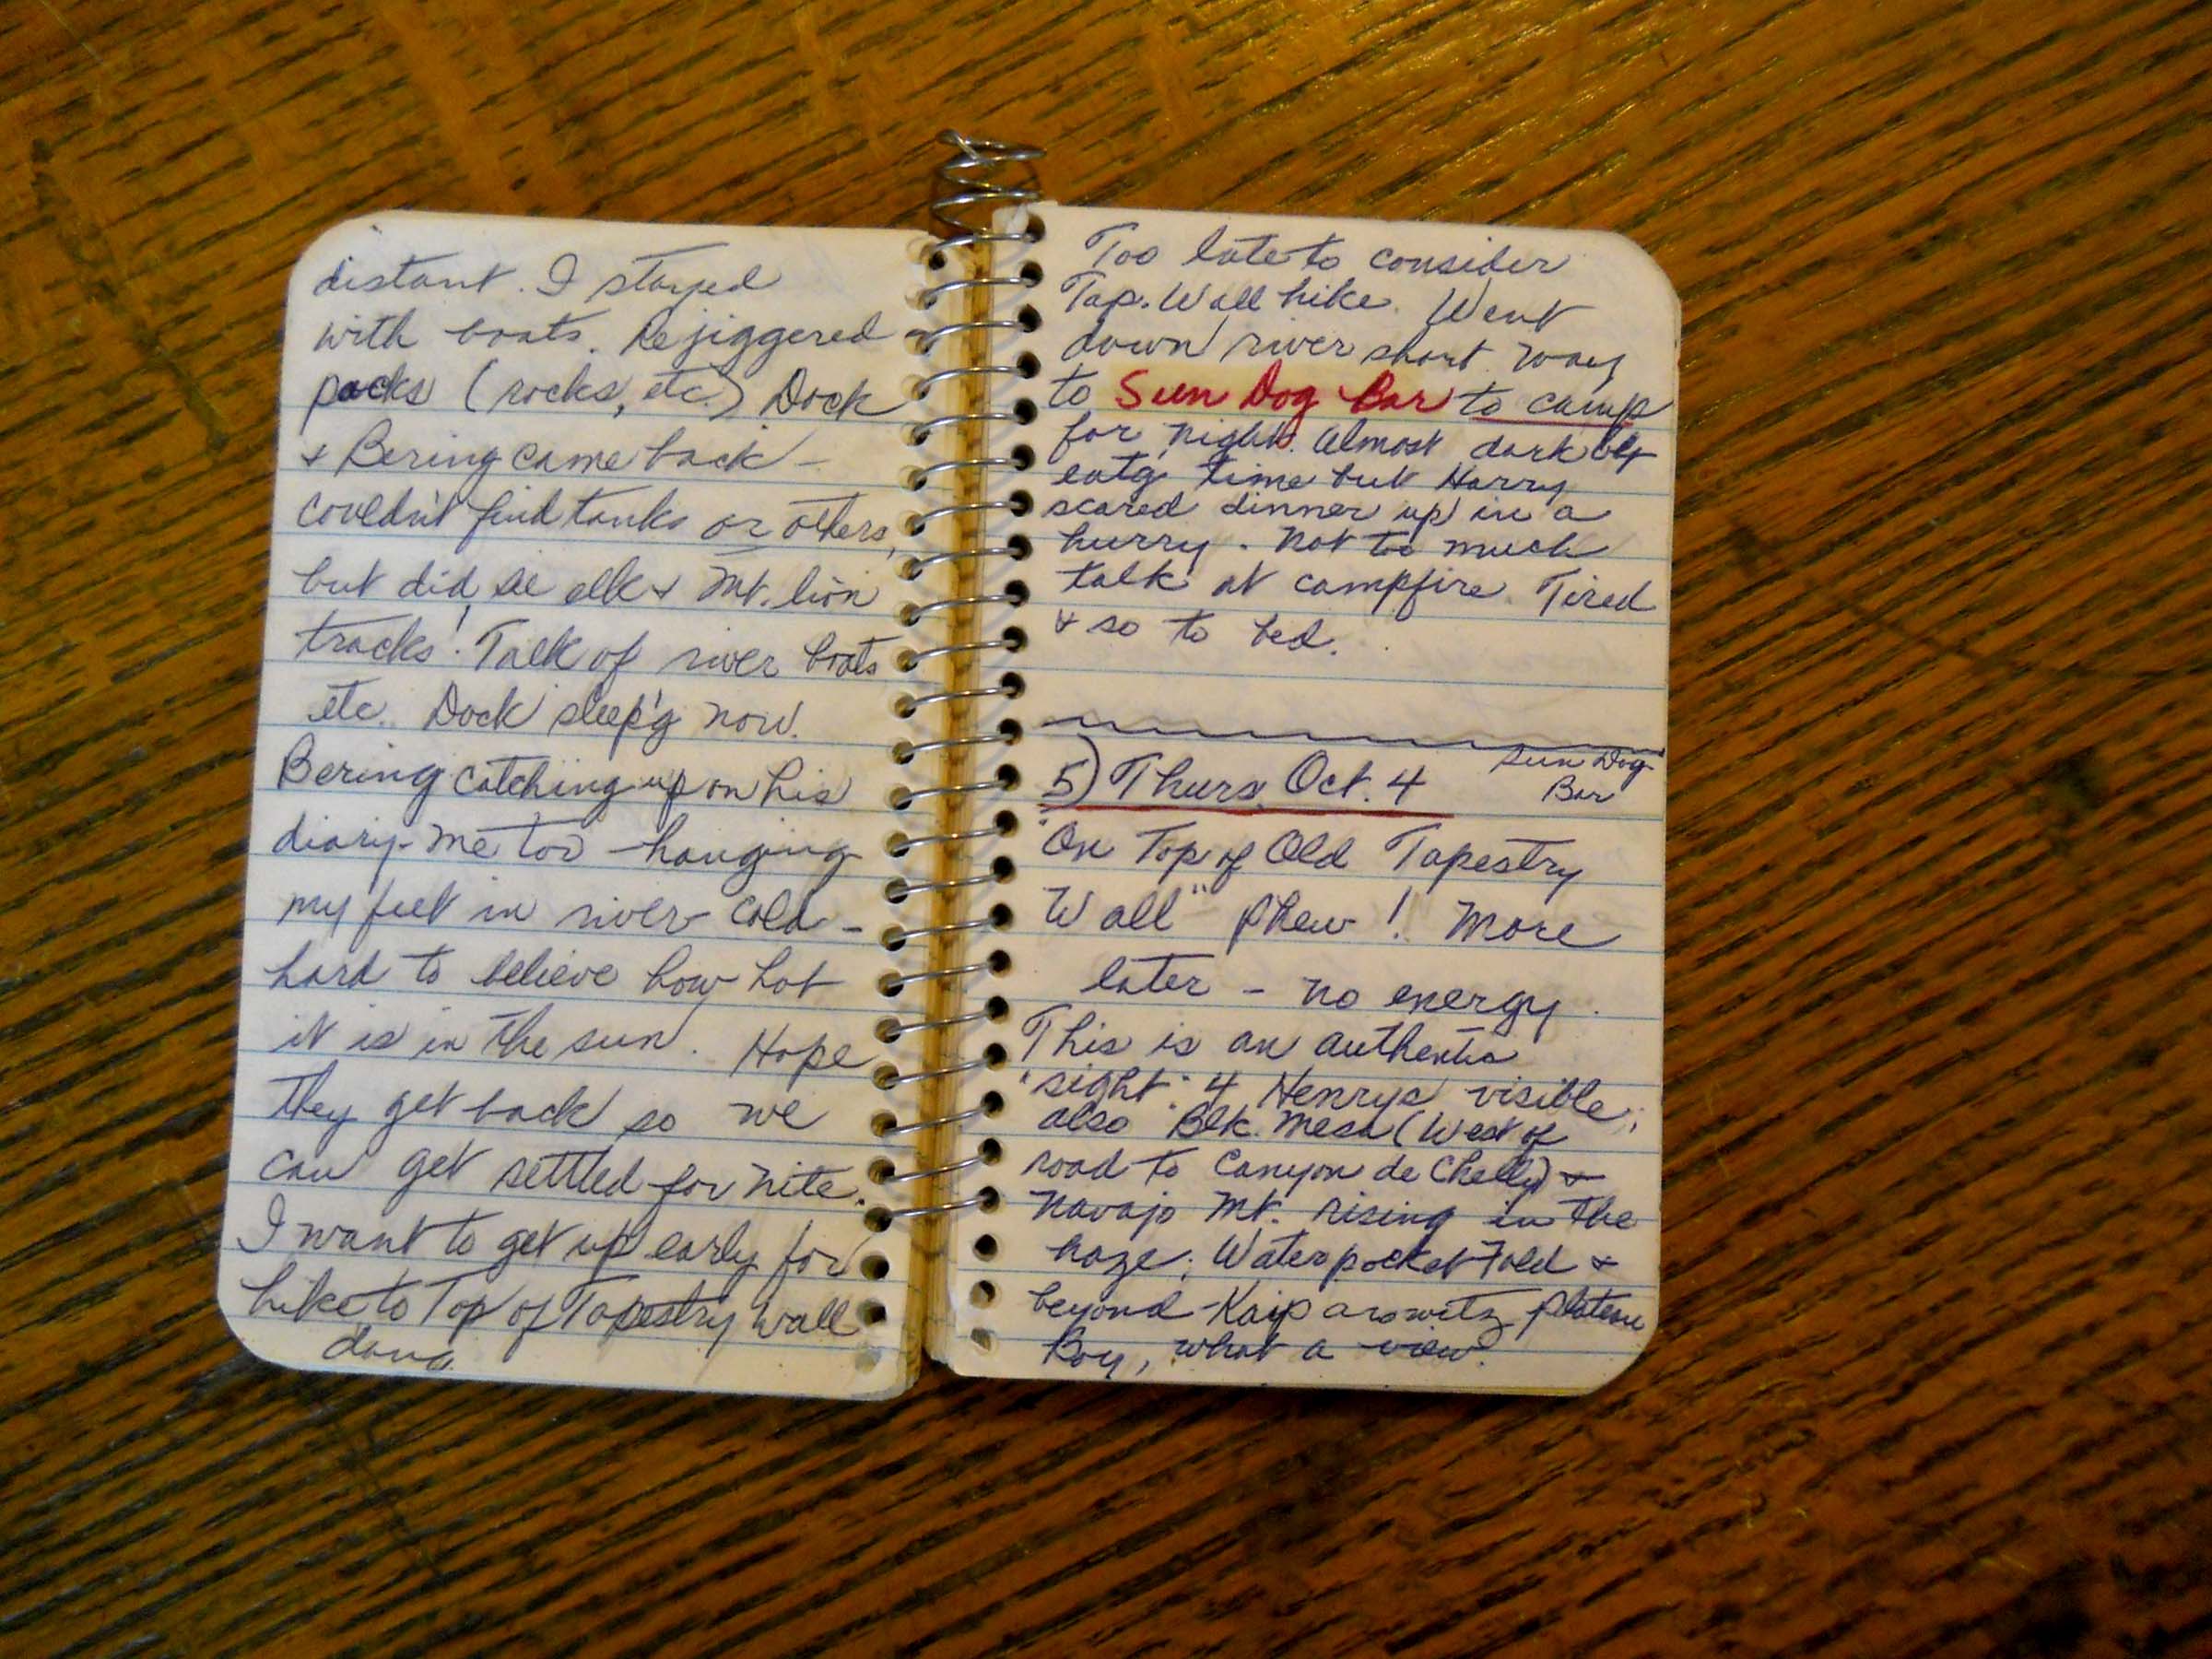 distant. I stayed
with boats. Rejiggered
packs (rocks, etc.) Dock
& Bering came back -
couldn't find tanks or others,
but did see elk & Mt. lion
tracks! Talk of river boats
etc. Dock sleep'g now.
Bering catching up on his
diary - me too - hanging
my feet in river - cold -
hard to believe how hot
it is in the sun. Hope
they get back so we
can get settled for nite.
I want to get up early for
hike to Top of Tapestry Wall
Too late to consider
Tap. Wall hike. Went
down river short way
to Sun Dog Bar to camp
for night. Almost dark by
eatg time but Harry
scared dinner up in a
hurry. Not too much
talk at campfire. Tired
& so to bed.
Sun Dog
Bar
5) Thurs. Oct. 4
"On Top of Old Tapestry
Wall" Phew! More
later - no energy.
This is an authentic
"sight": 4 Henrys visible;
also Blk. Mesa (West of
road to Canyon de Chelly) &
Navajo Mt. rising in the
haze; Waterpocket Fold &
beyond - Kaiparowitz Plateau
Boy, what a view!